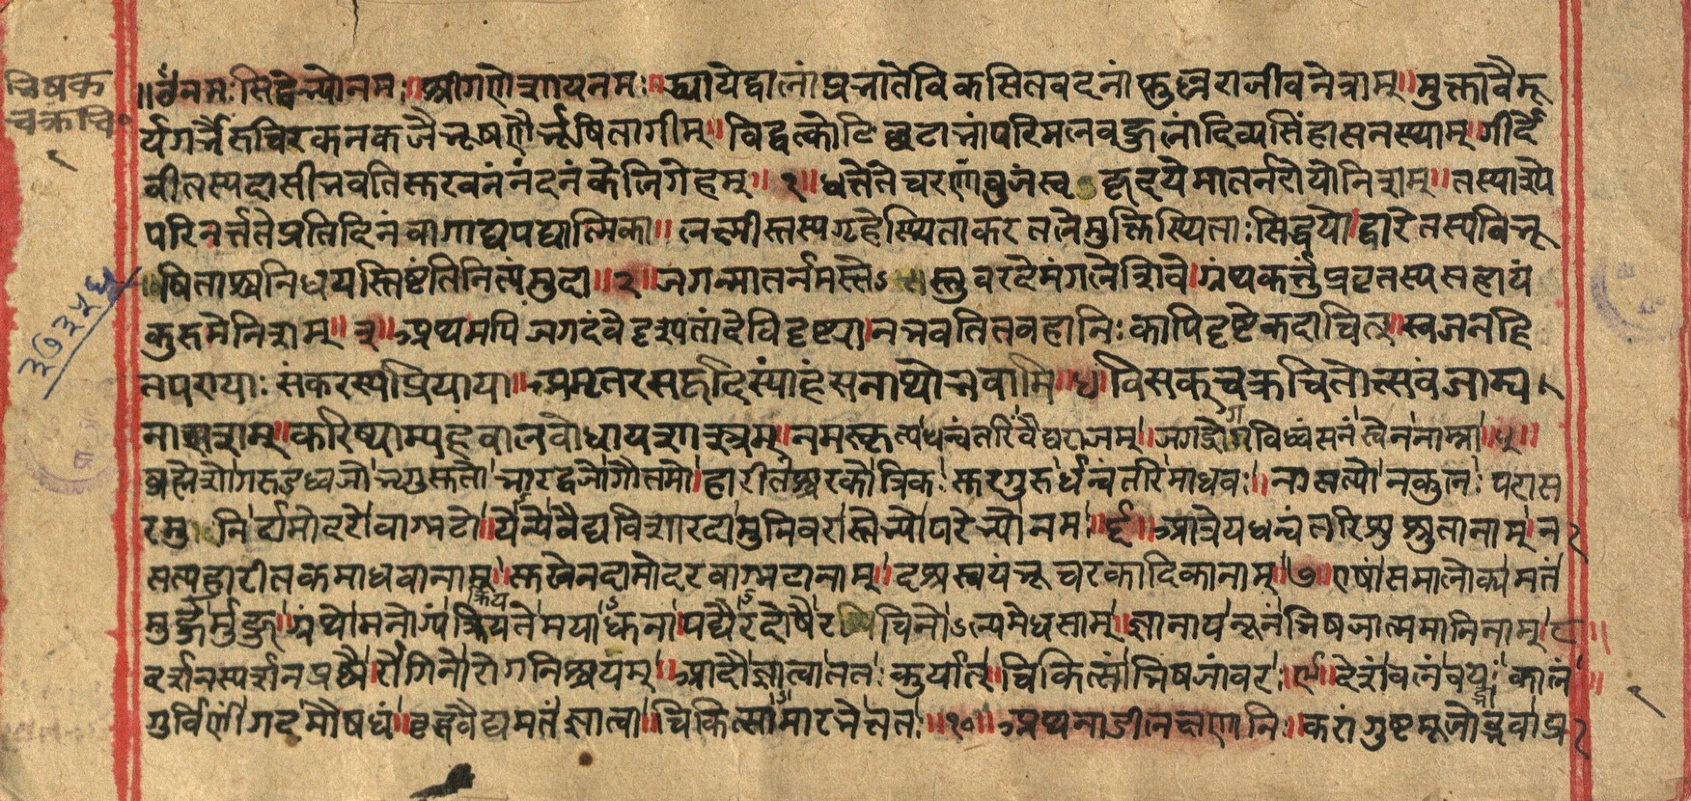 भिषक
चक्रचि॰
॥ॐनमःसिद्धेभ्योनमः॥श्रीगणेशायनमः॥ध्यायेद्बालांप्रभातेविकसितवदनांफुल्लराजीवनेत्राम्॥मुक्तावैमू
र्यगर्भैरुचिरकनकजैभूषणैर्भूषितांगीम्॥विद्वत्कोटिछटाभांपरिमलबहुलांदिव्यसिंहासनस्थाम्॥गीर्दे
वीतस्यदासीभवतिसुरवनंनंदनंकेलिगेहम्॥१॥धत्तेतेचरणांबुजंस्वहृदयेमातर्नरोयोनिशम्॥तस्यास्ये
परिनर्त्ततेप्रतिदिनंवागाद्यपद्यात्मिका॥लक्ष्मीस्तस्यगृहेस्थिताकरतलेमुक्तिस्थिताःसिद्धयोद्वारेतस्यविभू
षिताश्चनिधयस्तिष्टंतिनित्यंमुदा॥२॥जगन्मातर्नमस्तेऽस्तुवरदेमंगलेशिवे॥ग्रंथकर्त्तुंप्रवृतस्यसहायं
कुरुमेनिशम्॥३॥अथमपिजगदंबेदृश्यतांदेविदृष्ट्या॥नभवतितवहानिःकापिदृष्टेकदाचित्॥स्वजनहि
तपरायाःसंकरस्यप्रियाया॥अमृतरसहृदिस्यांहंसनाथोभवामि॥४॥विसकच्चक्रचितोत्सवंजाम्य
नाशाम्॥करिष्याम्यहंबालबोधायशास्त्रम्॥नमस्कृत्यधन्वंतरिंवैद्यराजम्॥जगद्रोगविध्वंसनंस्वेननाम्ना॥५॥
ब्रह्मेशोगरुडध्वजोभृगुसुतोभारद्वजोगौतमो॥हारीतश्चरकोत्रिकःसुरगुरुर्धन्वंतरिमाधवः॥नासत्योनकुलःपरास
रमुनिर्दामोदरोवाग्भटो॥येन्येवैद्यविशारदामुनिवरास्तेभ्योपरेभ्योनमः॥६॥आत्रेयधन्वंतरिसुश्रुतानाम्॥न
सत्यहारीतकमाधवानाम्॥सुखेनदामोदरवाग्भटानाम्॥दस्रस्वयंभूचरकादिकानाम्॥७॥एषांसमालोक्यमतं
मुर्हुर्मुर्हु॥ग्रंथोमनोग्यंक्रियतेमयाधुना॥पद्यैरदोषैरचितोऽल्पमेधसाम्॥ज्ञानायनूनंभिषजात्ममानिनाम्॥८॥
दर्शनस्पर्शनप्रश्नै॥रोगिनोरोगनिश्चयम्॥आदौज्ञात्वाततःकुर्यात्॥चिकित्सांभिषजांवरः॥९॥देशंबलंवयःकालं॥
गुर्विणींगदमौषधं॥वृद्धवैद्यमतंज्ञात्वा॥चिकित्सामारभेततः॥१०॥अथनाडीलक्षणानि॥करांगुष्टमूलोद्भवाप्र